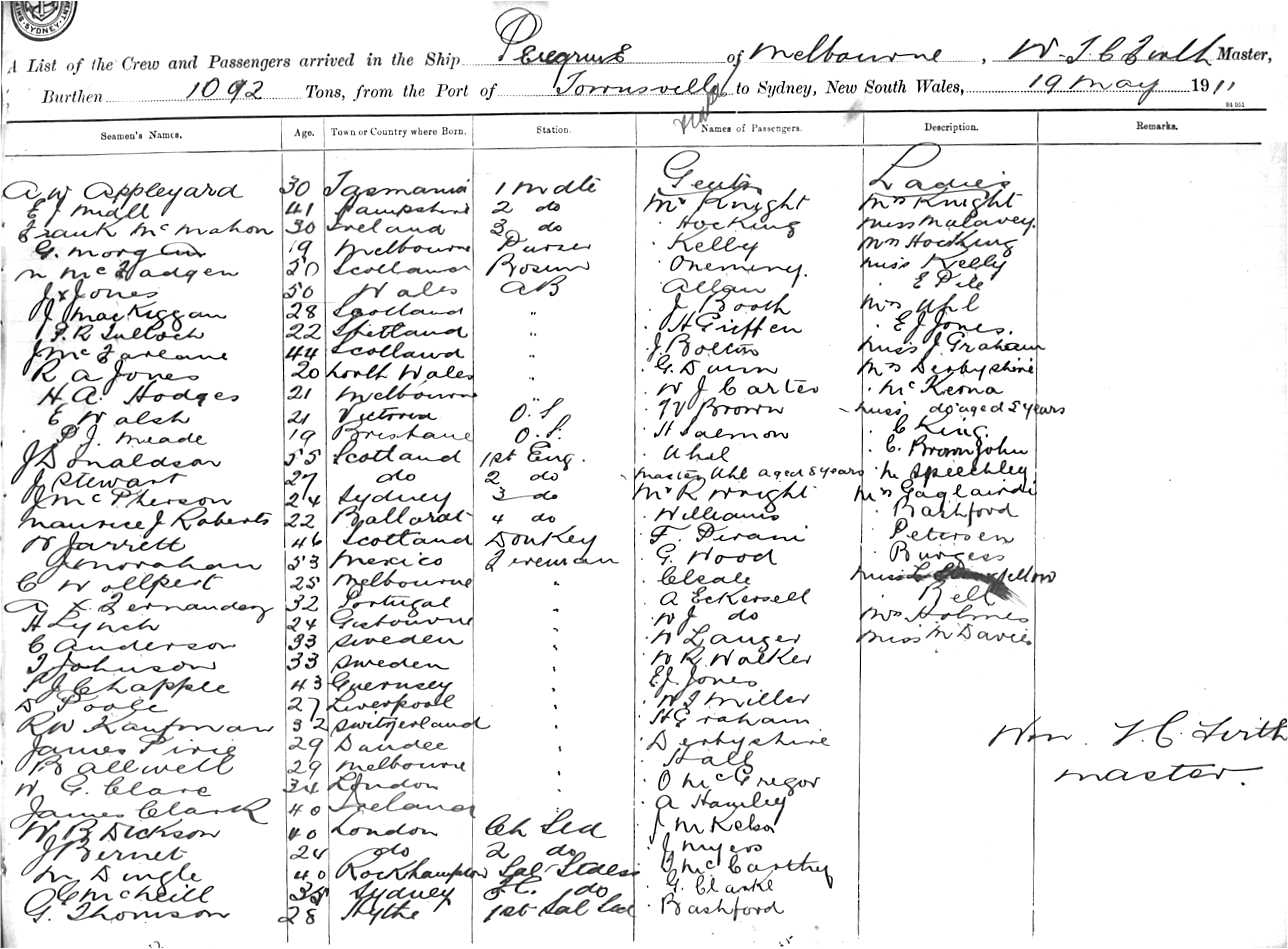 SYDNEY
A List of the Crew and Passengers arrived in the Ship Peregrine of Melbourne, W. T. C. Firth Master,
Burthen 1092 Tons, from the Port of Townsville to Sydney, New South Wales, 19 May 1911
Seamen's Names. Age. Town or Country where Born. Station. Names of Passengers. Description. Remarks.
Gents Ladies
A W Appleyard 30 Tasmania 1 Mate Mr Knight Mrs Knight
E J Mall 41 Hampshire 2 do Hocking Miss Malavey.
Frank McMahon 30 Ireland 3 do Kelly Mrs Hocking
G. Morgan 19 Melbourne Purser Miss Kelly
N McFadgen 50 Scotland Bosun Allan E Pile
J Jones 50 Wales AB J Booth Mrs Uhl
J MacKiggan 28 Scotland " H Griffen E J Jones.
P. R Tulloch 22 Shetland " J Bolton Miss J. Graham
J McFarlane 44 Scotland " G. Dunn Mrs Derbyshire
R A Jones 20 North Wales " W J Carter McKenna
H. A. Hodges 21 Melbourne " W Brown Miss do aged 2 years
E Walsh 21 Victoria O. S. H Salmon C King
P. J. Meade 19 Brisbane O. S. Uhl C. Brownjohn
J Donaldson 55 Scotland 1st Eng. Master Uhl aged 8 years M Speechley
J Stewart 27 do 2 do Mr R Wright Mrs Gaglairdi
J McPherson 24 Sydney 3 do Williams Bashford
Maurice J Roberts 22 Ballarat 4 do F. Pirani Petersen
W Jarrett 46 Scotland Donkey G. Wood Burgess
J Monahan 53 Mexico Fireman Miss L
C Wollpert 25 Melbourne " A Eckersell Bell
Fernandez 32 Portugal " W J do Mrs Holmes
H Lynch 24 Gisbourne " W Langer Miss M Davies
C Anderson 33 Sweden " W R Walker
J Johnson 33 Sweden " E J Jones
P J Chapple 43 Guernsey " W J Miller
D Poole 27 Liverpool " H Graham
R W Kaufman 32 Switzerland " Derbyshire Wm. T. C. Firth
James Pirie 29 Dundee " Hall Master.
B Allwell 29 Melbourne " O McGregor
W G. Clare 34 London " A Hamley
James Clark 40 Ireland " J M Kelso
W. B Dickson 40 London Ch Std J Myers
J Bernet 24 do 2 do J McCarthy
M Dingle 40 Rockhampton Sal Stdess G. Clarke
G McNeill 35 Sydney F. C. do Bashford
G. Thomson 28 Hythe 1st Sal Std